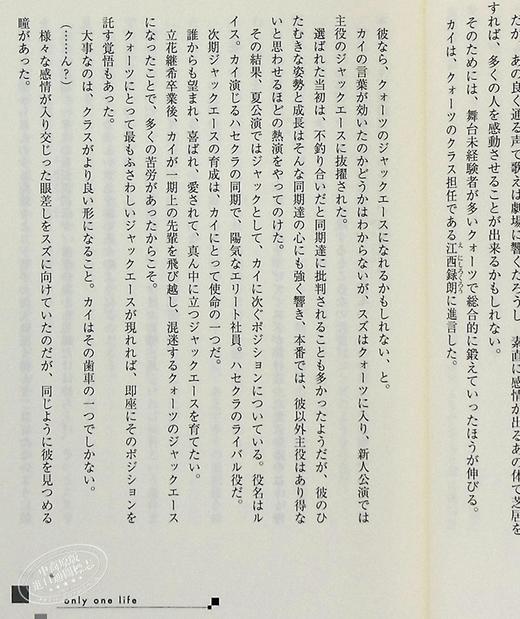 だが、あの良く通る声で歌えば劇場に響くだろうし、素直に感情が出るあの体で芝居を
すれば、多くの人を感動させることが出来るかもしれない。
そのためには、舞台未経験者が多いクォーツで総合的に鍛えていったほうが伸びる。
カイは、クォーツのクラス担任である江西録朗に進言した。
えにしろくろう
彼なら、クォーツのジャックエースになれるかもしれない、と。
カイの言葉が効いたのかどうかはわからないが、スズはクォーツに入り、新人公演では
主役のジャックエースに抜擢された。
選ばれた当初は、不釣り合いだと同期達に批判されることも多かったようだが、彼のひ
たむきな姿勢と成長はそんな同期達の心にも強く響き、本番では、彼以外主役はあり得な
いと思わせるほどの熱演をやってのけた。
その結果、夏公演ではジャックとして、カイに次ぐポジションについている。役名はル
イス。カイ演じるハセクラの同期で、陽気なエリート社員。ハセクラのライバル役だ。
次期ジャックエースの育成は、カイにとって使命の一つだ。
誰からも望まれ、喜ばれ、愛されて、真ん中に立つジャックエースを育てたい。
立花継希卒業後、カイが一期上の先輩を飛び越し、混迷するクォーツのジャックエース
になったことで、多くの苦労があったからこそ。
クォーツにとって最もふさわしいジャックエースが現れれば、即座にそのポジションを
託す覚悟もあった。
大事なのは、クラスがより良い形になること。カイはその歯車の一つでしかない。
(……ん?)
様々な感情が入り交じった眼差しをスズに向けていたのだが、同じように彼を見つめる
瞳があった。
only one life